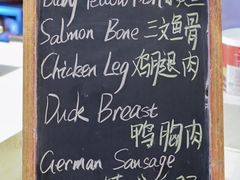 Baby Yellow
Salmon Bone 三文鱼骨
Chicken Leg 鸡腿肉
Duck Breast
鸭胸肉
German Sausage